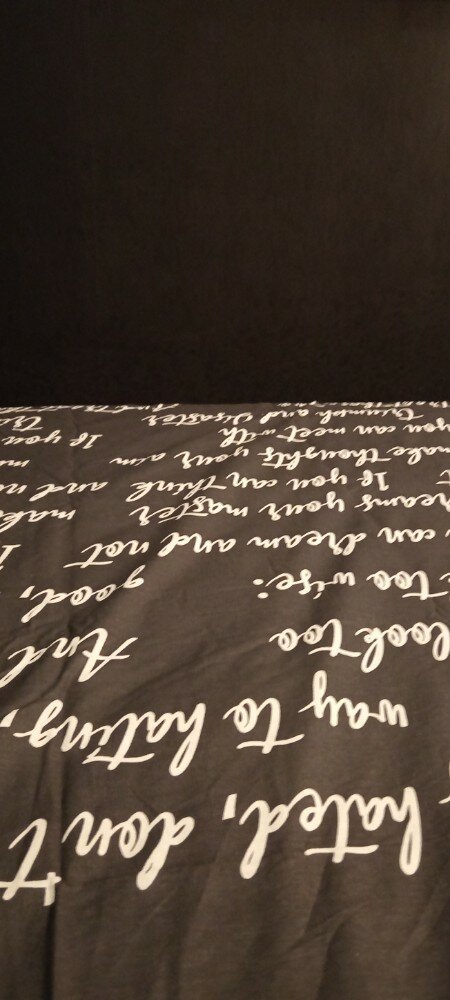 hated, don't
way to hating,
look too And
too wise: good,
can dream and not
reams your master mak
If you can think and no
make thoughts your aim
you can meet with If you
Triumph and disaster